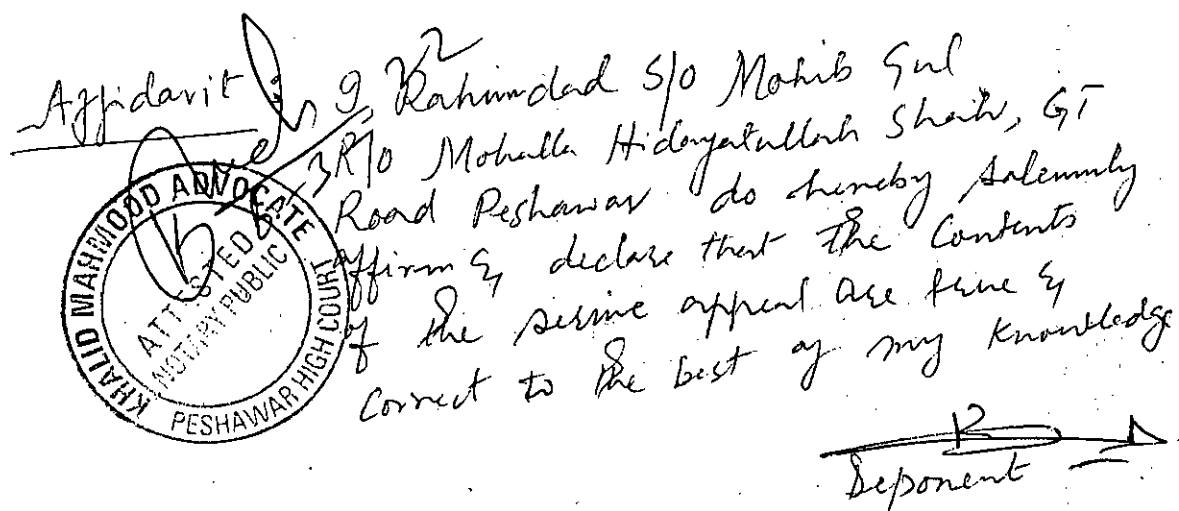 Affidavit
I, Rahimdad S/o Mohib Gul
R/o Mohalla Hidayatullah Shah, GT
Road Peshawar do hereby solemnly
affirm & declare that the Contents
of the service appeal are true &
correct to the best of my knowledge
Deponent
KHALID MAHMOOD ADVOCATE
ATTESTED
NOTARY PUBLIC
PESHAWAR HIGH COURT